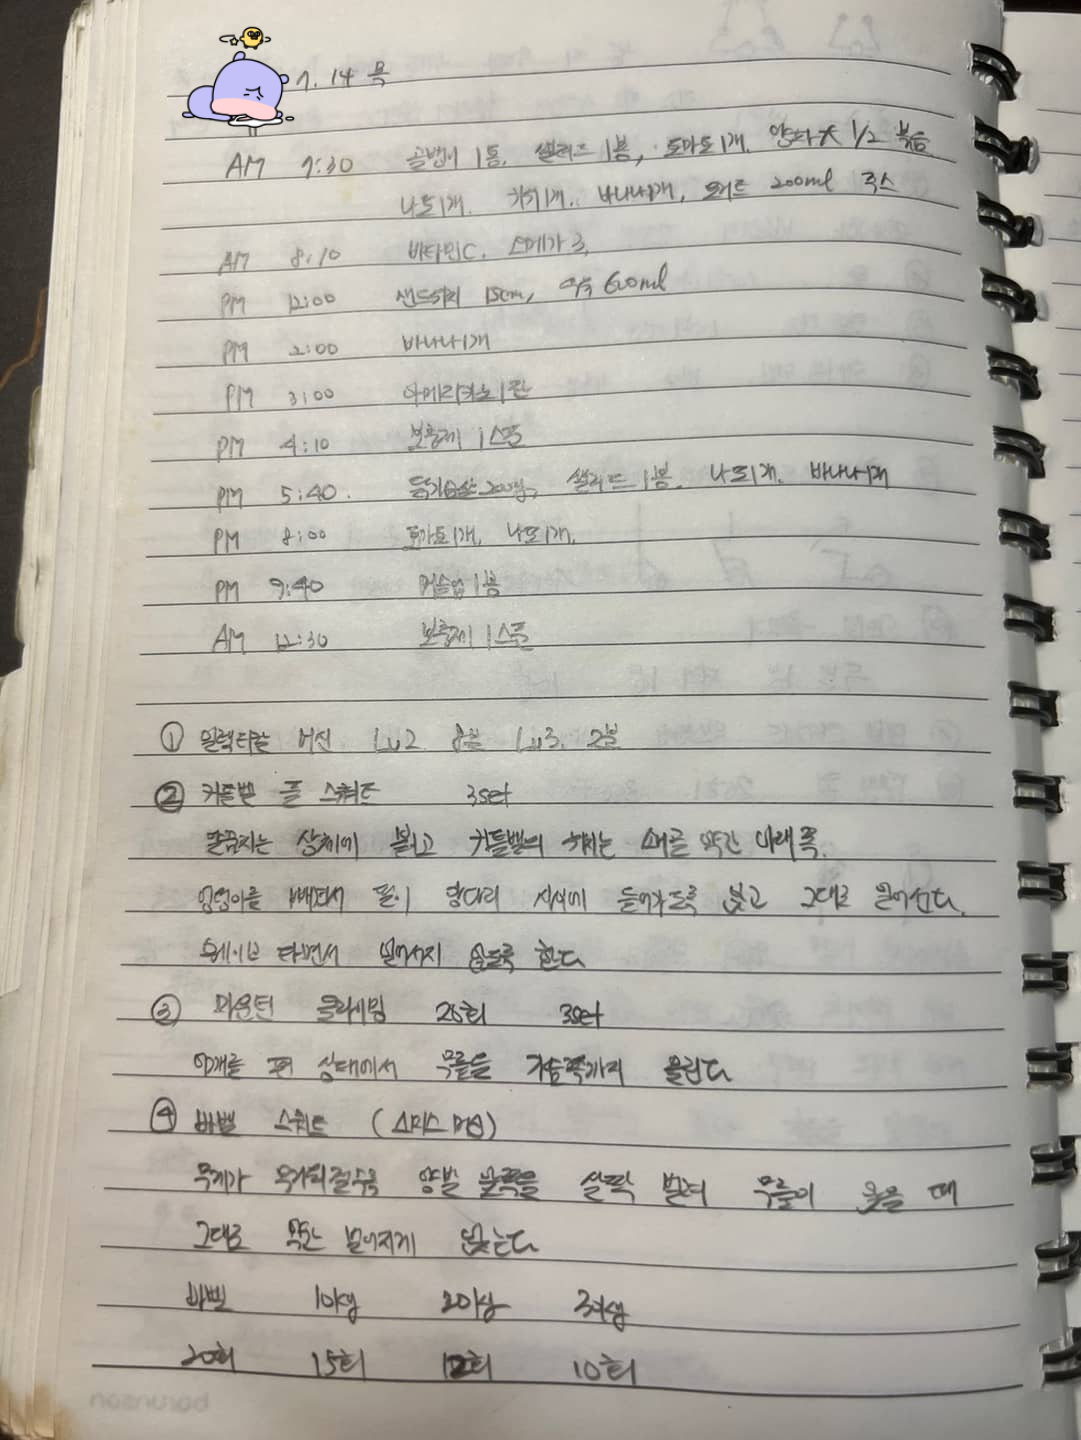 7. 14 목
AM 7:30 골뱅이 1통, 샐러드 1봉, 토마토1개, 양파大 1/2 볶음
나또1개, 키위1개, 바나나1개, 요거트 200ml 쥬스
AM 8:10 비타민C, 오메가3,
PM 12:00 샌드위치 15cm, 우유 600ml
PM 2:00 바나나1개
PM 3:00 아메리카노1잔
PM 4:10 보충제 1스푼
PM 5:40. 닭가슴살 200g, 샐러드 1봉, 나또1개, 바나나1개
PM 8:00 토마토1개, 나또1개,
PM 9:40 1봉
AM 12:30 보충제 1스푼
① 일렉티컬 머신 Lv2 8분 Lv3. 2분
② 커틀벨 풀 스쿼트 3set
팔꿈치는 상체에 붙이고 커틀벨의 위치는 쇄골 약간 아래쪽.
엉덩이를 빼면서 팔이 양다리 사이에 들어가도록 앉고 그대로 일어선다.
웨이브 타면서 일어서지 않도록 한다
③ 마운틴 클라이밍 25회 3set
어깨를 편 상태에서 무릎을 가슴쪽까지 올린다
④ 바벨 스쿼트 (스미스 머신)
무게가 추가되질수록 양발 살짝 벌려 무릎이 굽을 때
그대로 약간 벌어지게 앉는다
바벨 10kg 20kg 30kg
20회 15회 12회 10회
barunson